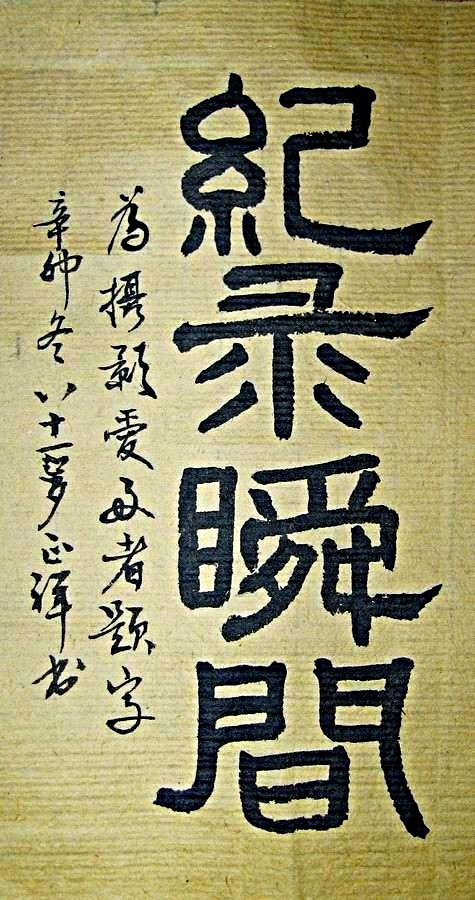 紀录瞬間
為攝影愛好者題字
辛卯冬八十一叟正禪书